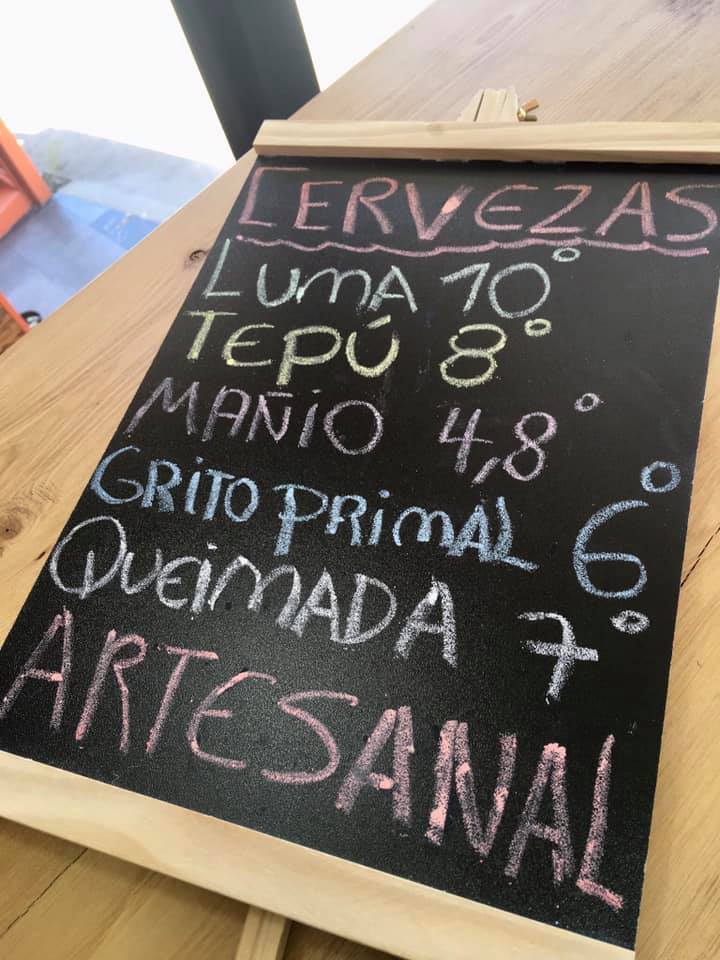 CERVEZAS
LUMA 10°
TEPÚ 8°
MAÑIO 4,8°
GRITO PRIMAL 6°
QUEIMADA 7°
ARTESANAL